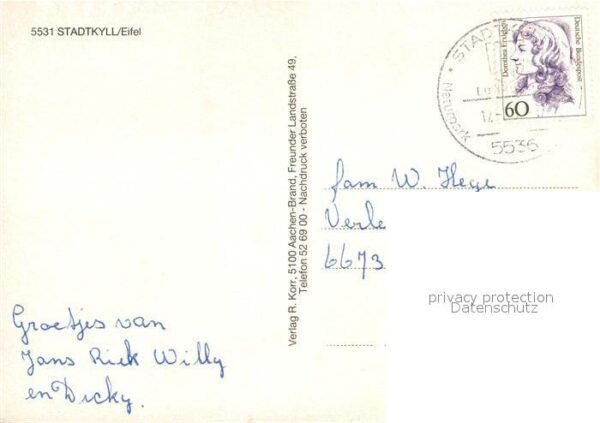 5531 STADTKYLL/Eifel
Verlag R. Korr, 5100 Aachen-Brand, Freunder Landstraße 49,
Telefon 52 69 00 - Nachdruck verboten
Dorothea Erxleben
Deutsche Bundespost
60
5536
fam W. Hege
Verle
6673
privacy protection
Datenschutz
Groetjes van
Jans Riek Willy
en Dicky.